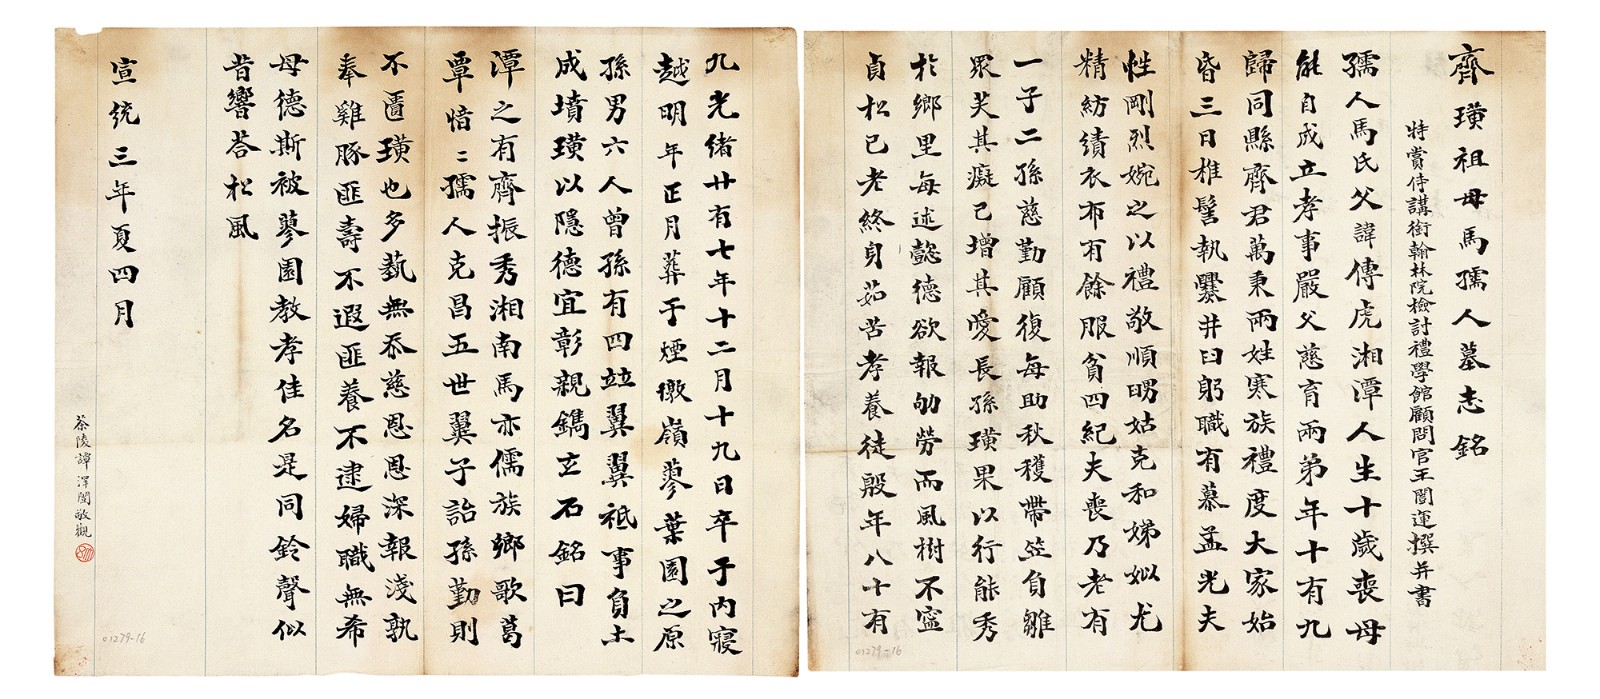 齊璜祖母馬孺人墓志銘
特賞侍講銜翰林院檢討禮學館顧問官王闓運撰并書
孺人馬氏父諱傳虎湘潭人生十歲喪母
能自成立孝事嚴父慈育兩弟年十有九
歸同縣齊君萬秉兩姓寒族禮度大家始
昏三日椎髻執爨井臼躬職有慕孟光夫
性剛烈婉之以禮敬順明姑克和娣姒尤
精紡績衣布有餘服貧四紀夫喪乃老有
一子二孫慈勤顧復每助秋穫帶笠負雛
眾笑其癡己增其愛長孫璜果以行能秀
於鄉里每述懿德欲報劬勞而風樹不寍
貞松已老終身茹苦孝養徒殷年八十有
九光緒廿有七年十二月十九日卒于內寢
越明年正月葬于煙墩嶺蓼葉園之原
孫男六人曾孫有四竝翼翼祗事負土
成墳璜以隱德宜彰親鐫立石銘曰
潭之有齊振秀湘南馬亦儒族鄉歌葛
覃愔〻孺人克昌五世翼子詒孫勤則
不匱璜也多蓺無忝慈恩恩深報淺孰
奉雞豚匪壽不遐匪養不逮婦職無希
母德斯被蓼園教孝佳名是同鈴聲似
昔響荅松風
宣統三年夏四月
茶陵譚澤闓敬觀
01279-16
01279-16